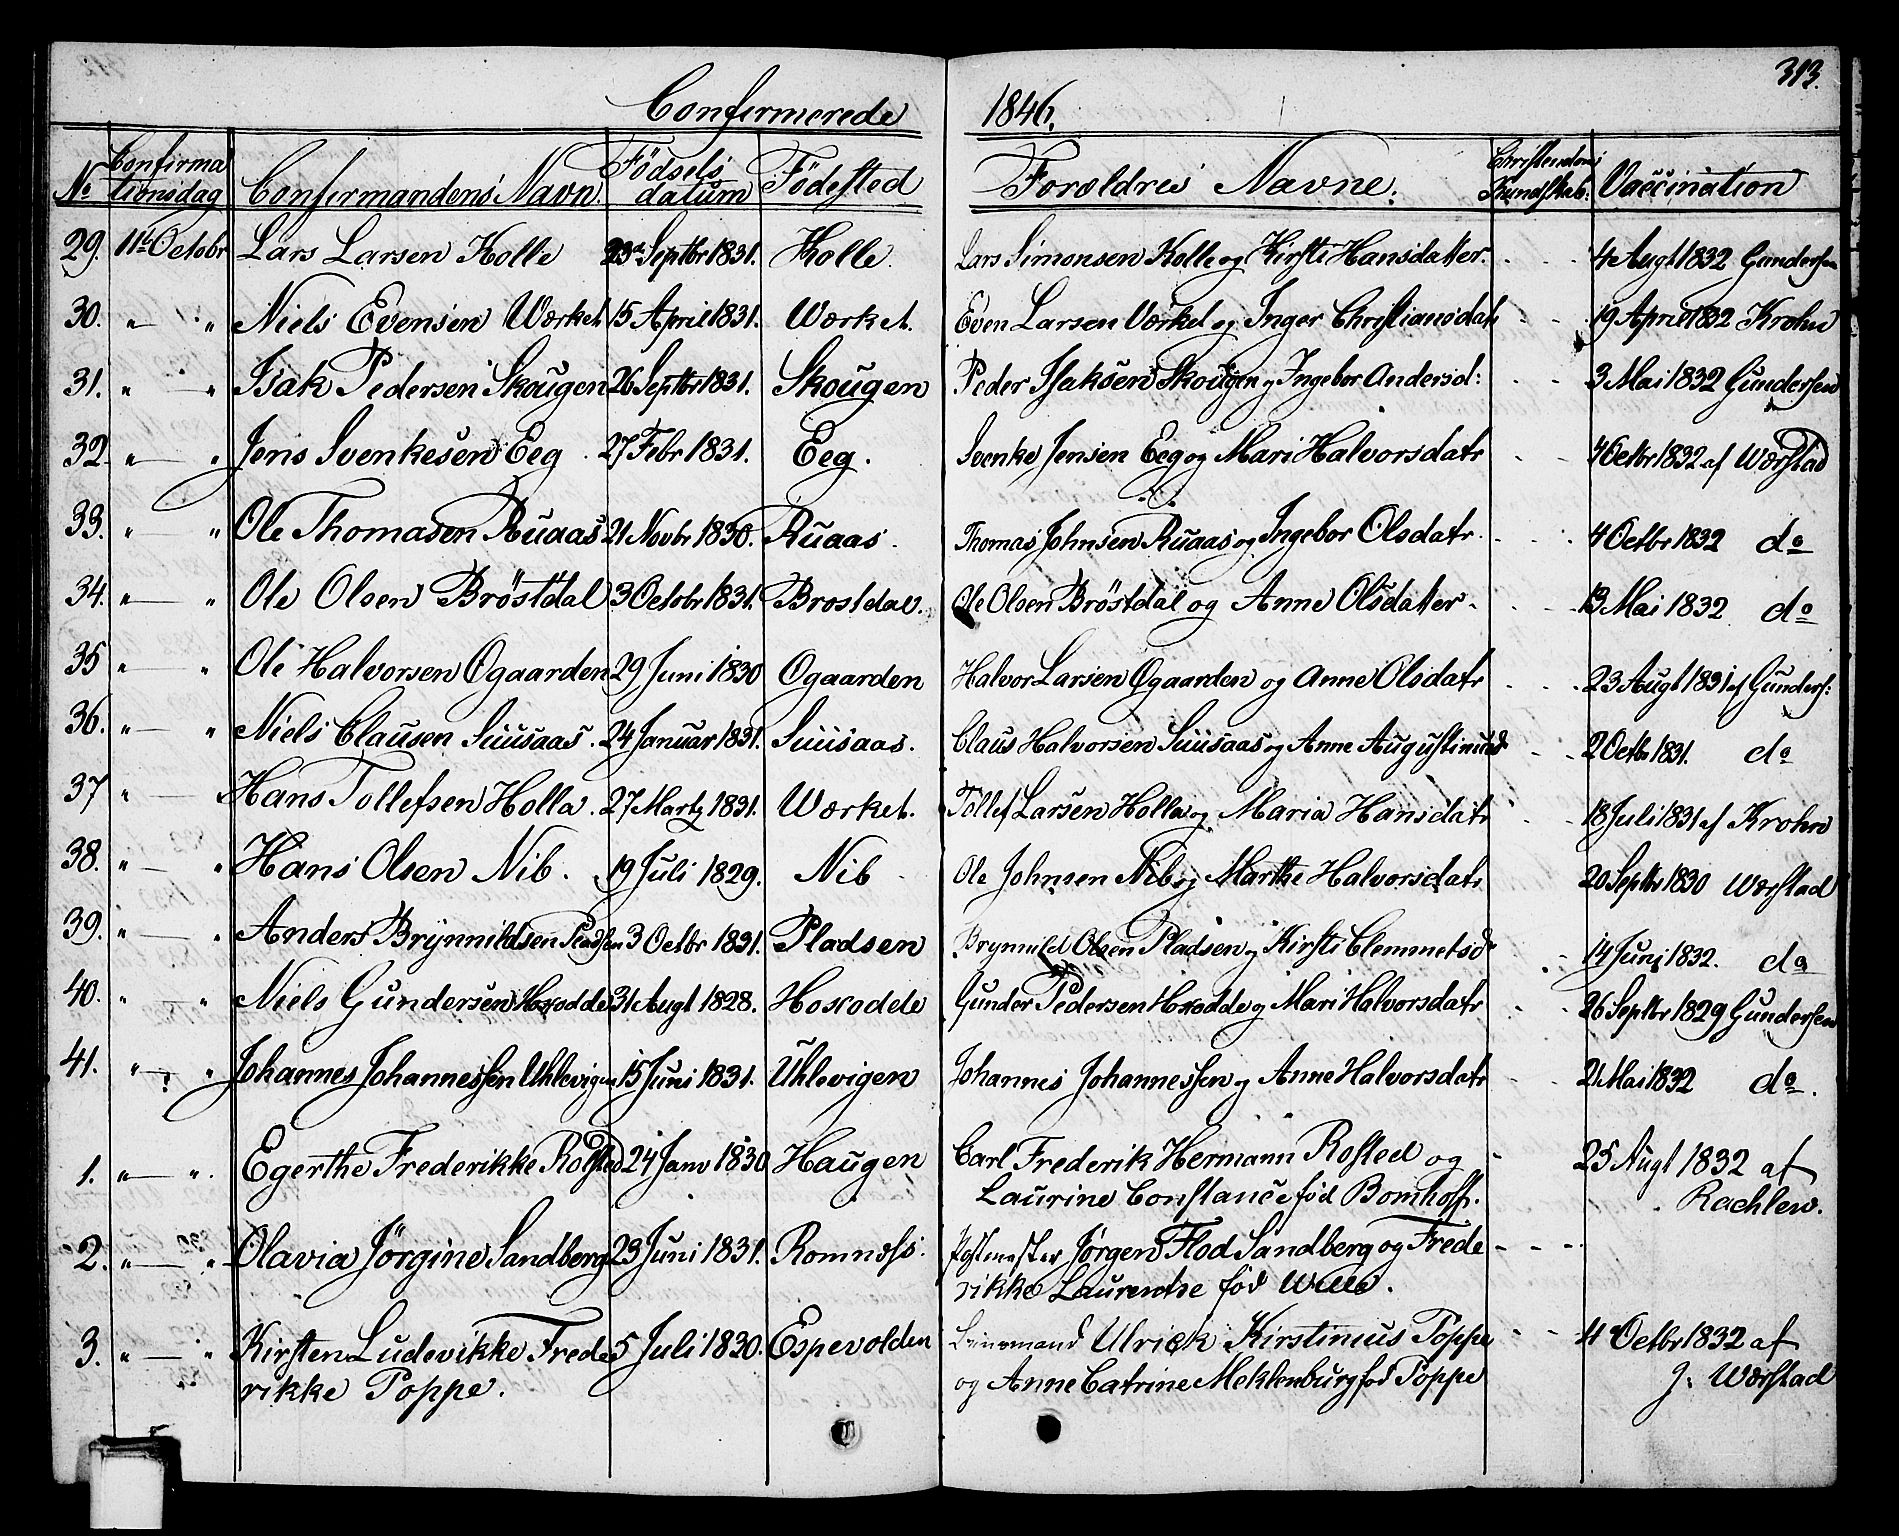 313.
Confirmerede 1846.
No Confirmationsdag Confirmandens Navn. Födsels datum Födested Forældres Navne. Christendoms Kundskab: Vaccination
29. 11te Octobr Lars Larsen Holle 23de Septbr 1831. Holle. Lars Simonsen Holle og Kirsti Hansdatter. 4 Augt 1832 Gundersen
30. " — " Niels Evensen Værket 15 April 1831. Værket. Even Larsen Værket og Inger Christiansdatr 19 April 1832 Krohn
31. " " Isak Pedersen Skougen 26 Septbr 1831. Skougen Peder Isaksen Skougen og Ingebor Andersd: 3 Mai 1832 Gundersen
32 " — " Jens Svenkesen Eeg 27 Febr 1831. Eeg. Svenke Jensen Eeg og Mari Halvorsdatr 4 Octbr 1832 af Værstad
33. " " Ole Thomasen Ruaas 21 Novbr 1830. Ruaas. Thomas Johnsen Ruaas og Ingebor Olsdatr. 4 Octbr 1832 do
34. " — " Ole Olsen Bröstdal 3 Octobr 1831. Brostdal. Ole Olsen Bröstdal og Anne Olsdatter. 13 Mai 1832 do
35 " — " Ole Halvorsen Ogaarden 29 Juni 1830 Ogaarden Halvor Larsen Ogaarden og Anne Olsdatr 23 Augt 1831 af Gunders:
36. " — " Niels Clausen Suusaas. 24 Januar 1831. Suusaas. Claus Halvorsen Suusaas og Anne Augustinusd 2 Octbr 1831. do
37 " — Hans Tollefsen Holla. 27 Martz 1831. Værket. Tollef Larsen Holla og Maria Hansdatr 18 Juli 1831 af Krohn
38. " — " Hans Olsen Nib. 19 Juli 1829. Nib Ole Johnsen Nib og Marthe Halvorsdatr 20 Septbr 1830 Værstad
39. " — " Anders Brynnildsen Pladsen 3 Octbr 1831. Pladsen Brynnild Olsen Pladsen og Kirsti Clemmetsdr 14 Juni 1832. do
40. " — " Niels Gundersen Hoxodde 31 Augt 1828. Hoxodde Gunder Pedersen Hoxodde og Mari Halvorsdatr 26 Septbr 1829 Gundersen
41. " — " Johannes Johannessen Uhlevigen 15 Juni 1831. Uhlevigen Johannes Johannessen og Anne Halvorsdatr 21 Mai 1832 do.
1. " — ". Egerthe Frederikke Rosted 24 Janv 1830 Haugen Carl Frederik Hermann Rosted og 25 Augt 1832 af
Laurine Constance föd Bomhoff. Rachlew.
2. " — " Olavia Jörgine Sandberg 23 Juni 1831. Romnæs. Postmester Jörgen Flod Sandberg og Frede
rikke Laurentse föd Wille.
3. " — " Kirsten Ludevikke Frede 5 Juli 1830. Espevolden Ulrick Kirstinus Poppe 4 Octbr 1832 af
rikke Poppe. og Anne Catrine Meklenburg föd Poppe J. Værstad